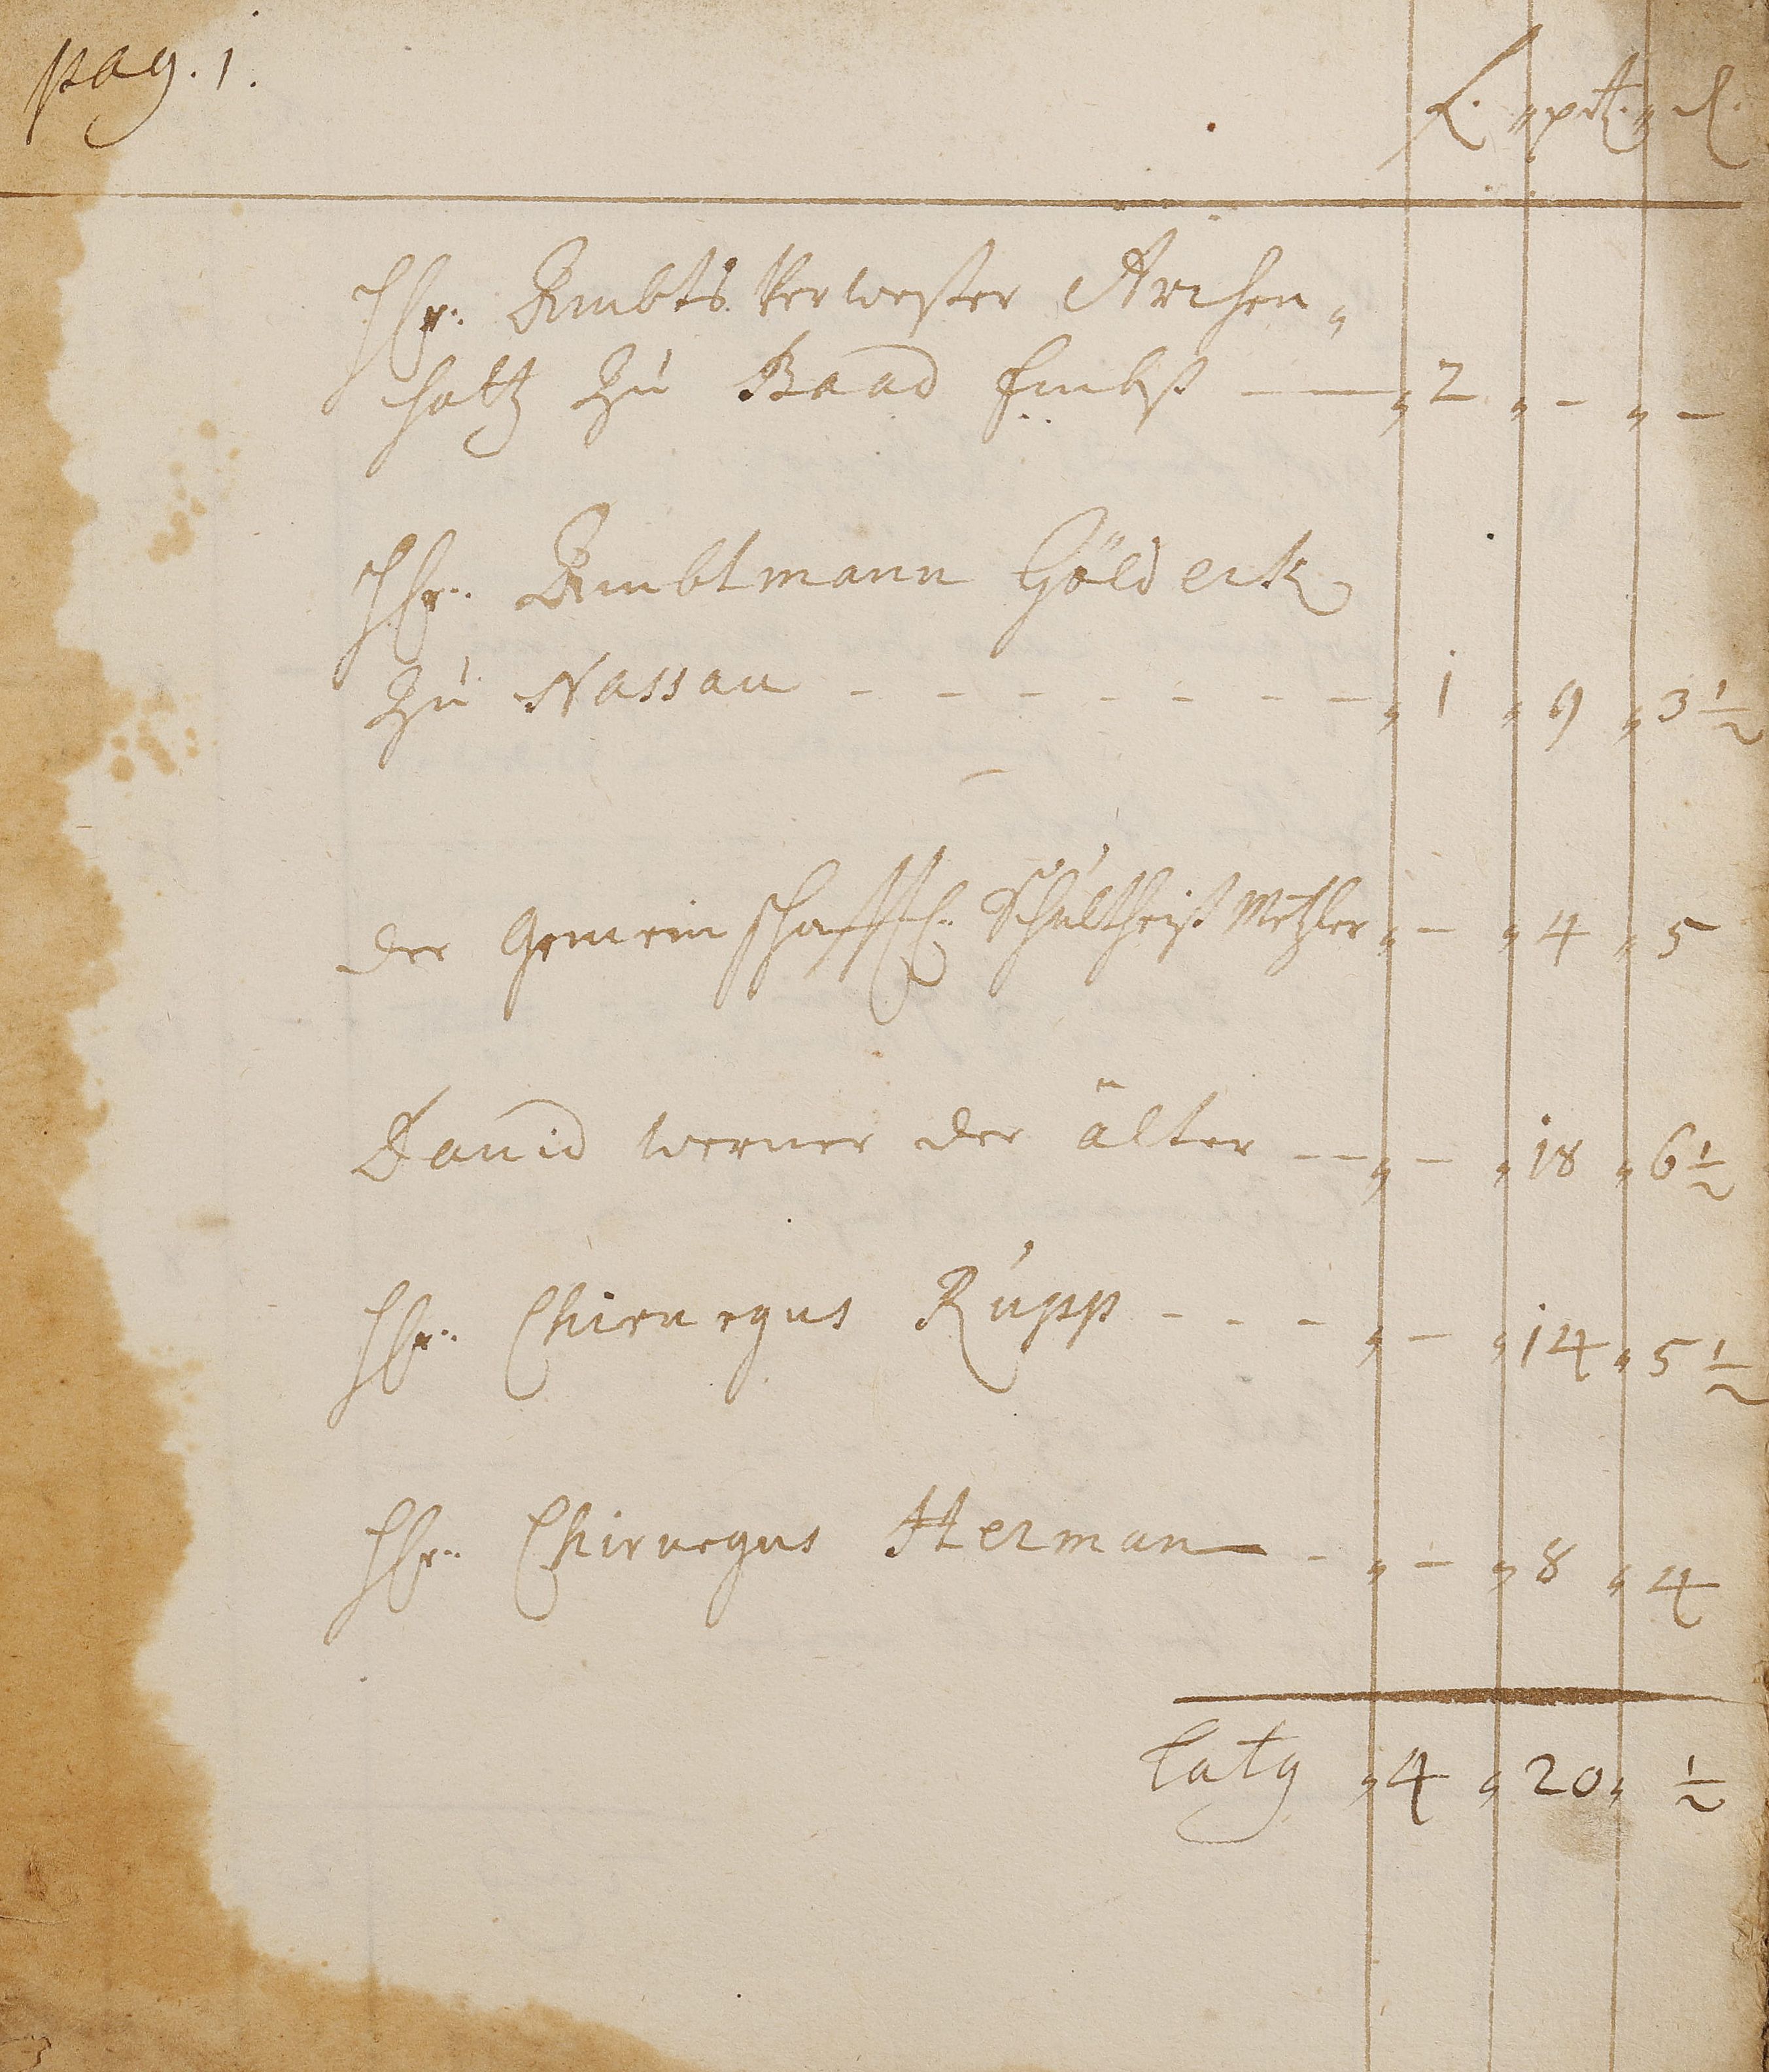 pag. 1.
f. „ ptz. „ d.
Hr. Ambts Verweßer Archen„
holtz zu Baad Embß — „ 2 „ - „ -
Hr. Ambtmann Göldeck
zu Nassau - - - - - - - „ 1 „ 9 „ 3 1/2
der Gemeinschafftl. Schultheiß Metzler „ - „ 4 „ 5
David Werner der älter - - „ - „ 18 „ 6 1/2
Hr. Chirurgus Rupp - - - „ - „ 14 „ 5 1/2
Hr. Chirurgus Herman - „ - „ 8 „ 4
Latg „ 4 „ 20 „ 1/2